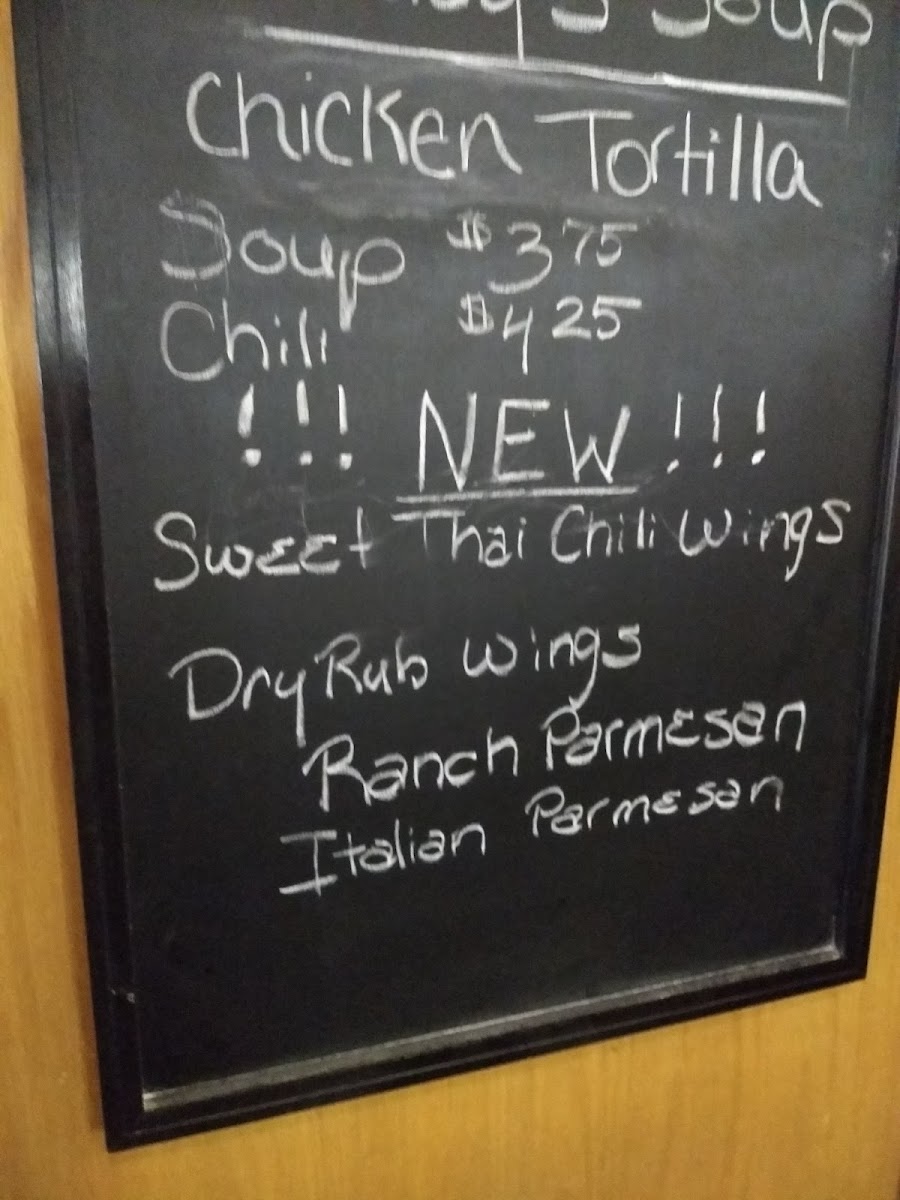 Soup
Chicken Tortilla
Soup $3.75
Chili $4.25
!!! NEW !!!
Sweet Thai Chili Wings
Dry Rub Wings
Ranch Parmesan
Italian Parmesan